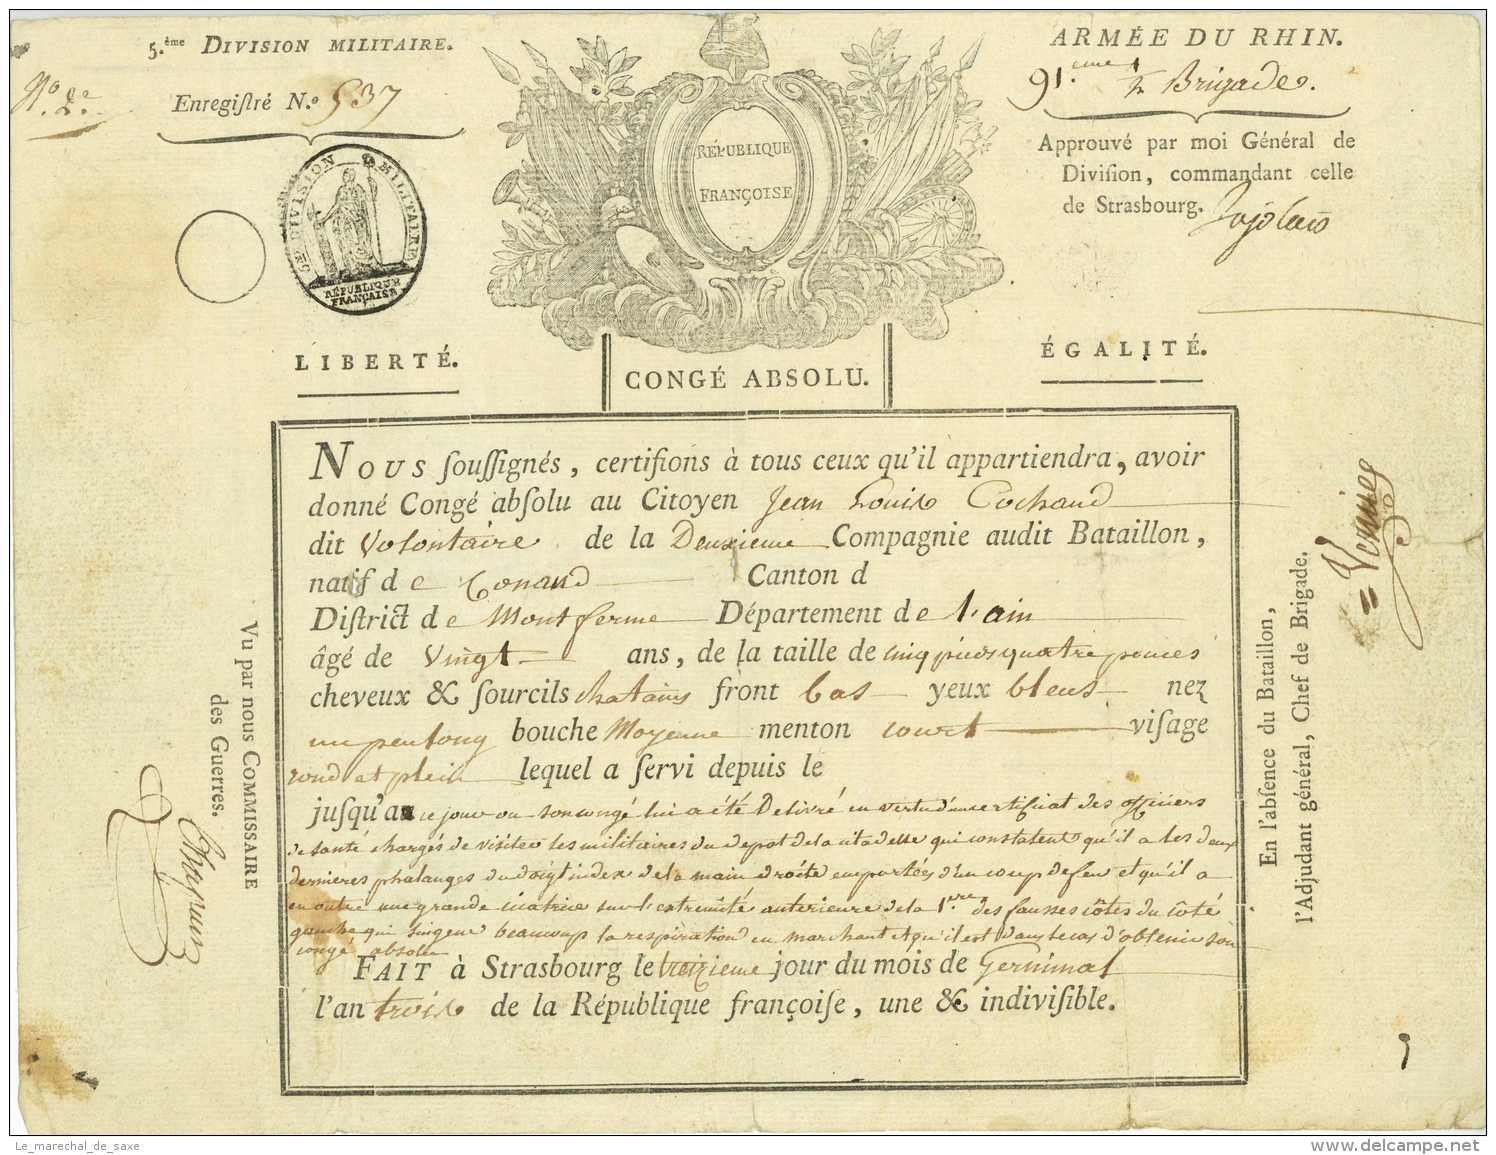 5.ème DIVISION MILITAIRE.
N.o 2.e
Enregiſtré N.o 537
DIVISION MILITAIRE
RÉPUBLIQUE
FRANÇAISE
RÉPUBLIQUE
FRANÇOISE
ARMÉE DU RHIN.
91.eme ½ Brigade.
Approuvé par moi Général de
Diviſion, commandant celle
de Strasbourg.
LIBERTÉ.
CONGÉ ABSOLU.
ÉGALITÉ.
NOUS ſouſſignés, certifions à tous ceux qu'il appartiendra, avoir
donné Congé abſolu au Citoyen Jean Louis Cochand
dit Volontaire de la Deuxieme Compagnie audit Bataillon,
natif de Conand Canton d
Diſtrict de Montferme Département de l'ain
âgé de Vingt ans, de la taille de cinq pieds quatre pouces
cheveux & ſourcils chatains front bas yeux bleus nez
un peu long bouche Moyenne menton court viſage
rond et plein lequel a ſervi depuis le
juſqu'au ce jour ou son congé lui a été Delivré en vertu d'un certificat des officiers
de santé chargés de visiter les militaires du depot de la citadelle qui constatent qu'il a les deux
dernieres phalanges du doigt index de la main droite emportées d'un coup de feu et qu'il a
en outre une grande cicatrice sur l'extremité anterieure de la 1.ere des fausses côtes du côté
gauche qui beaucoup la respiration en marchant et qu'il est dans le cas d'obtenir son
congé absolu
FAIT à Strasbourg le treizieme jour du mois de Germinal
l'an trois de la République françoiſe, une & indiviſible.
Vu par nous COMMISSAIRE
des Guerres.
Chapuis
En l'abſence du Bataillon,
l'Adjudant général, Chef de Brigade.
Le_marechal_de_saxe
www.delcampe.net